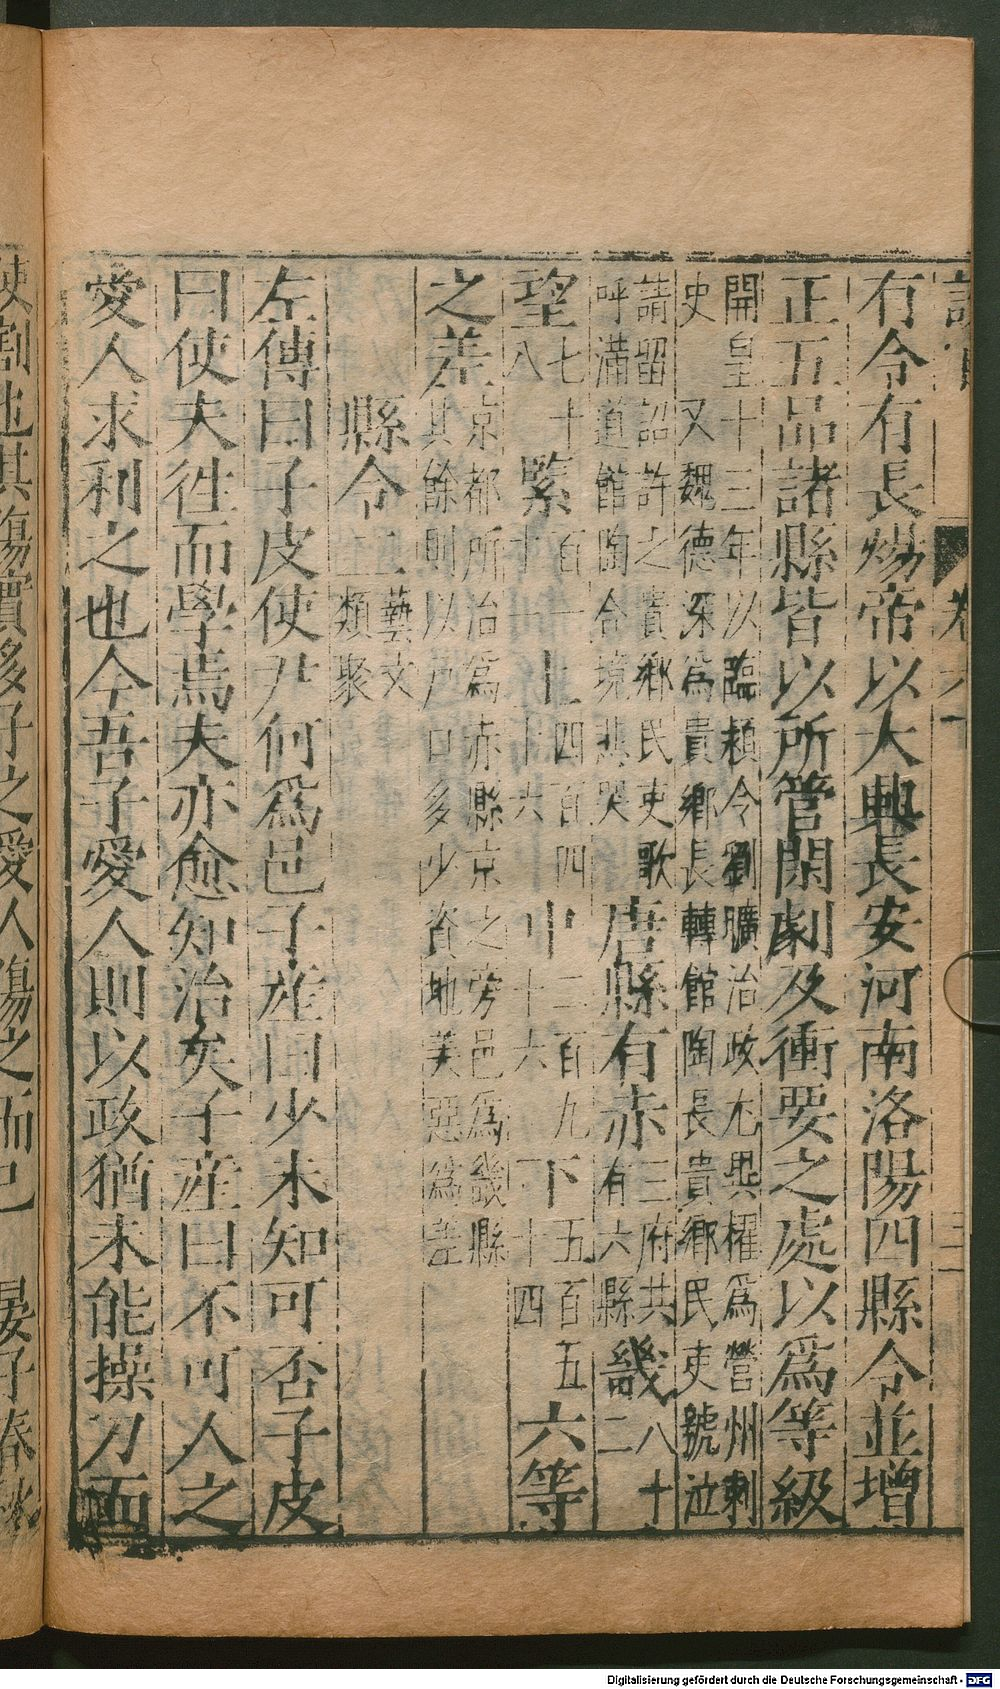 有令有長煬帝以大興長安河南洛陽四縣令並增
正五品諸縣皆以所管閑劇及衝要之處以爲等級
開皇十三年以臨潁令劉曠治政尤異櫂爲營州刺
史 又魏德深爲貴鄉長轉館陶長貴鄉民吏號泣
請留詔許之貴鄉民吏歌
呼滿道館陶合境悲哭
唐縣有赤
三府共
有六縣
畿
八十
二
望
七十
八
緊
百一
十
上
四百四
十六
中
二百九
十六
下
五百五
十四
六等
之差
京都所治爲赤縣京之旁邑爲畿縣
其餘則以戶口多少資地美惡爲差
縣令二
藝文
類聚
左傳曰子皮使尹何爲邑子産曰少未知可否子皮
曰使夫徃而學焉夫亦愈知治矣子産曰不可人之
愛人求利之也今吾子愛人則以政猶未能操刀而
使割也其傷實多子之愛人傷之而已 晏子春秋
Digitalisierung gefördert durch die Deutsche Forschungsgemeinschaft - DFG